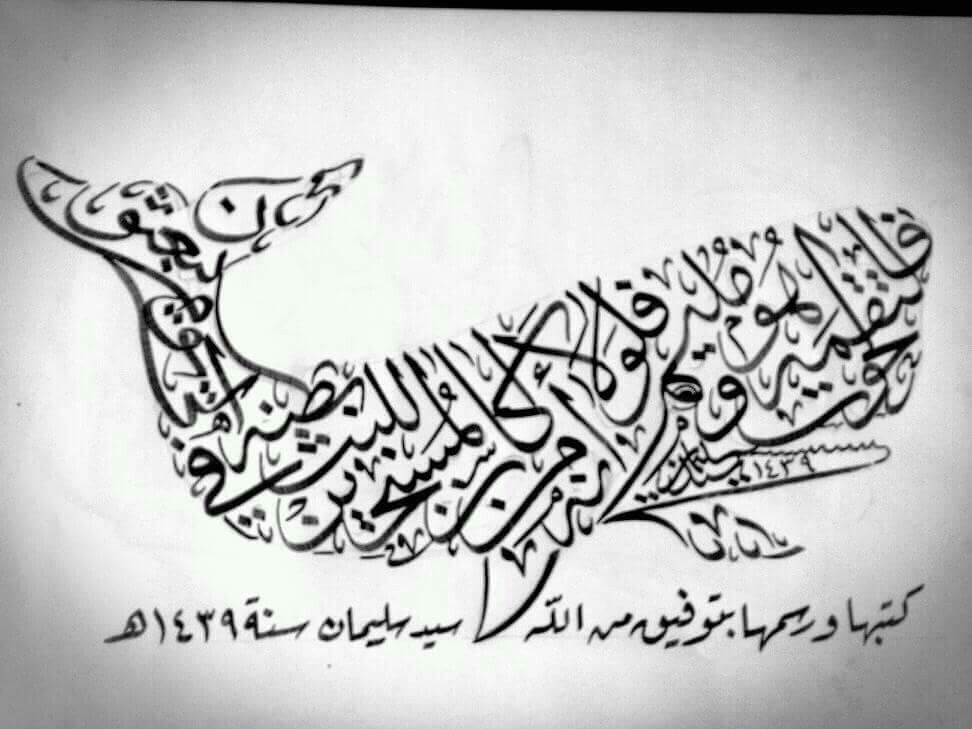 فالتقمه الحوت وهو مليم فلولا أنه كان من المسبحين للبث في بطنه إلى يوم يبعثون
سليمان ١٤٣٩
كتبها ورسمها بتوفيق من الله سيد سليمان سنة ١٤٣٩هـ